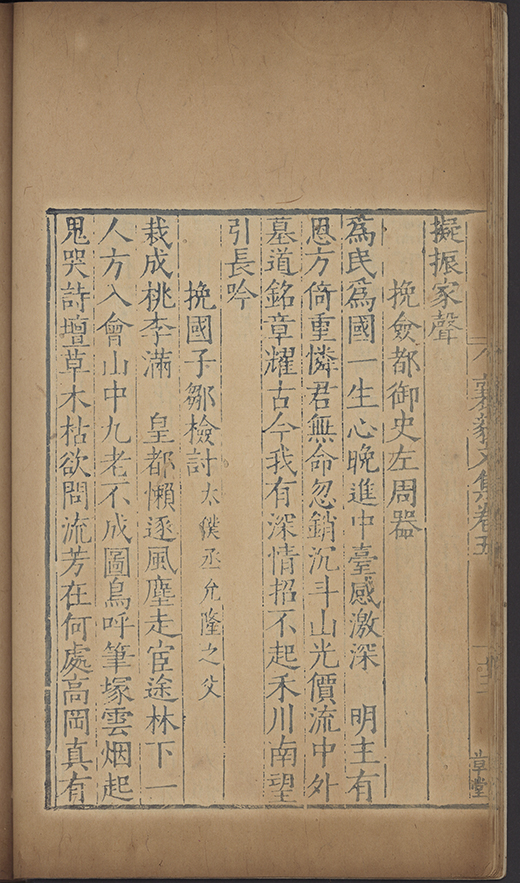 擬振家聲
挽僉都御史左周器
為民為國一生心晚進中臺感激深 明主有
恩方倚重憐君無命忽銷沉斗山光價流中外
墓道銘章耀古今我有深情招不起禾川南望
引長吟
挽國子鄒檢討太僕丞允隆之父
栽成桃李滿 皇都懶逐風塵走宦途林下一
人方入會山中九老不成圖鳥呼筆塚雲烟起
鬼哭詩壇草木枯欲問流芳在何處高岡真有
文集卷五
草堂